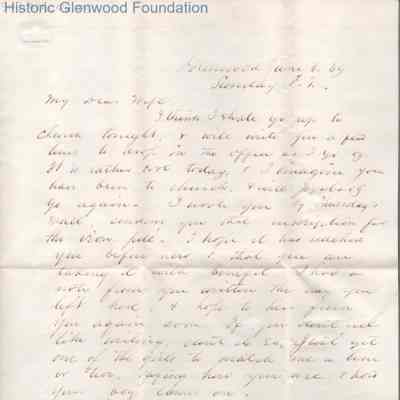 Historic Glenwood Foundation
Glenwood June 6. 69
Sunday P.M.
My Dear Wife
I think I shall go up to
church tonight, & will write you a few
lines to drop in the office as I go by
It is rather hot today, & I imagine you
have been to church & will probably
go again. I wrote you by Thursday's
mail sending you that inscription for
the iron pill. I hope it has reached
you before now & that you are
taking it with benefit. I had a
note from you written the day you
left here, & hope to hear from
you again soon. If you don't feel
like writing, don't do so, but get
one of the girls to write me a line
or two, saying how you are & how
your boy comes on.